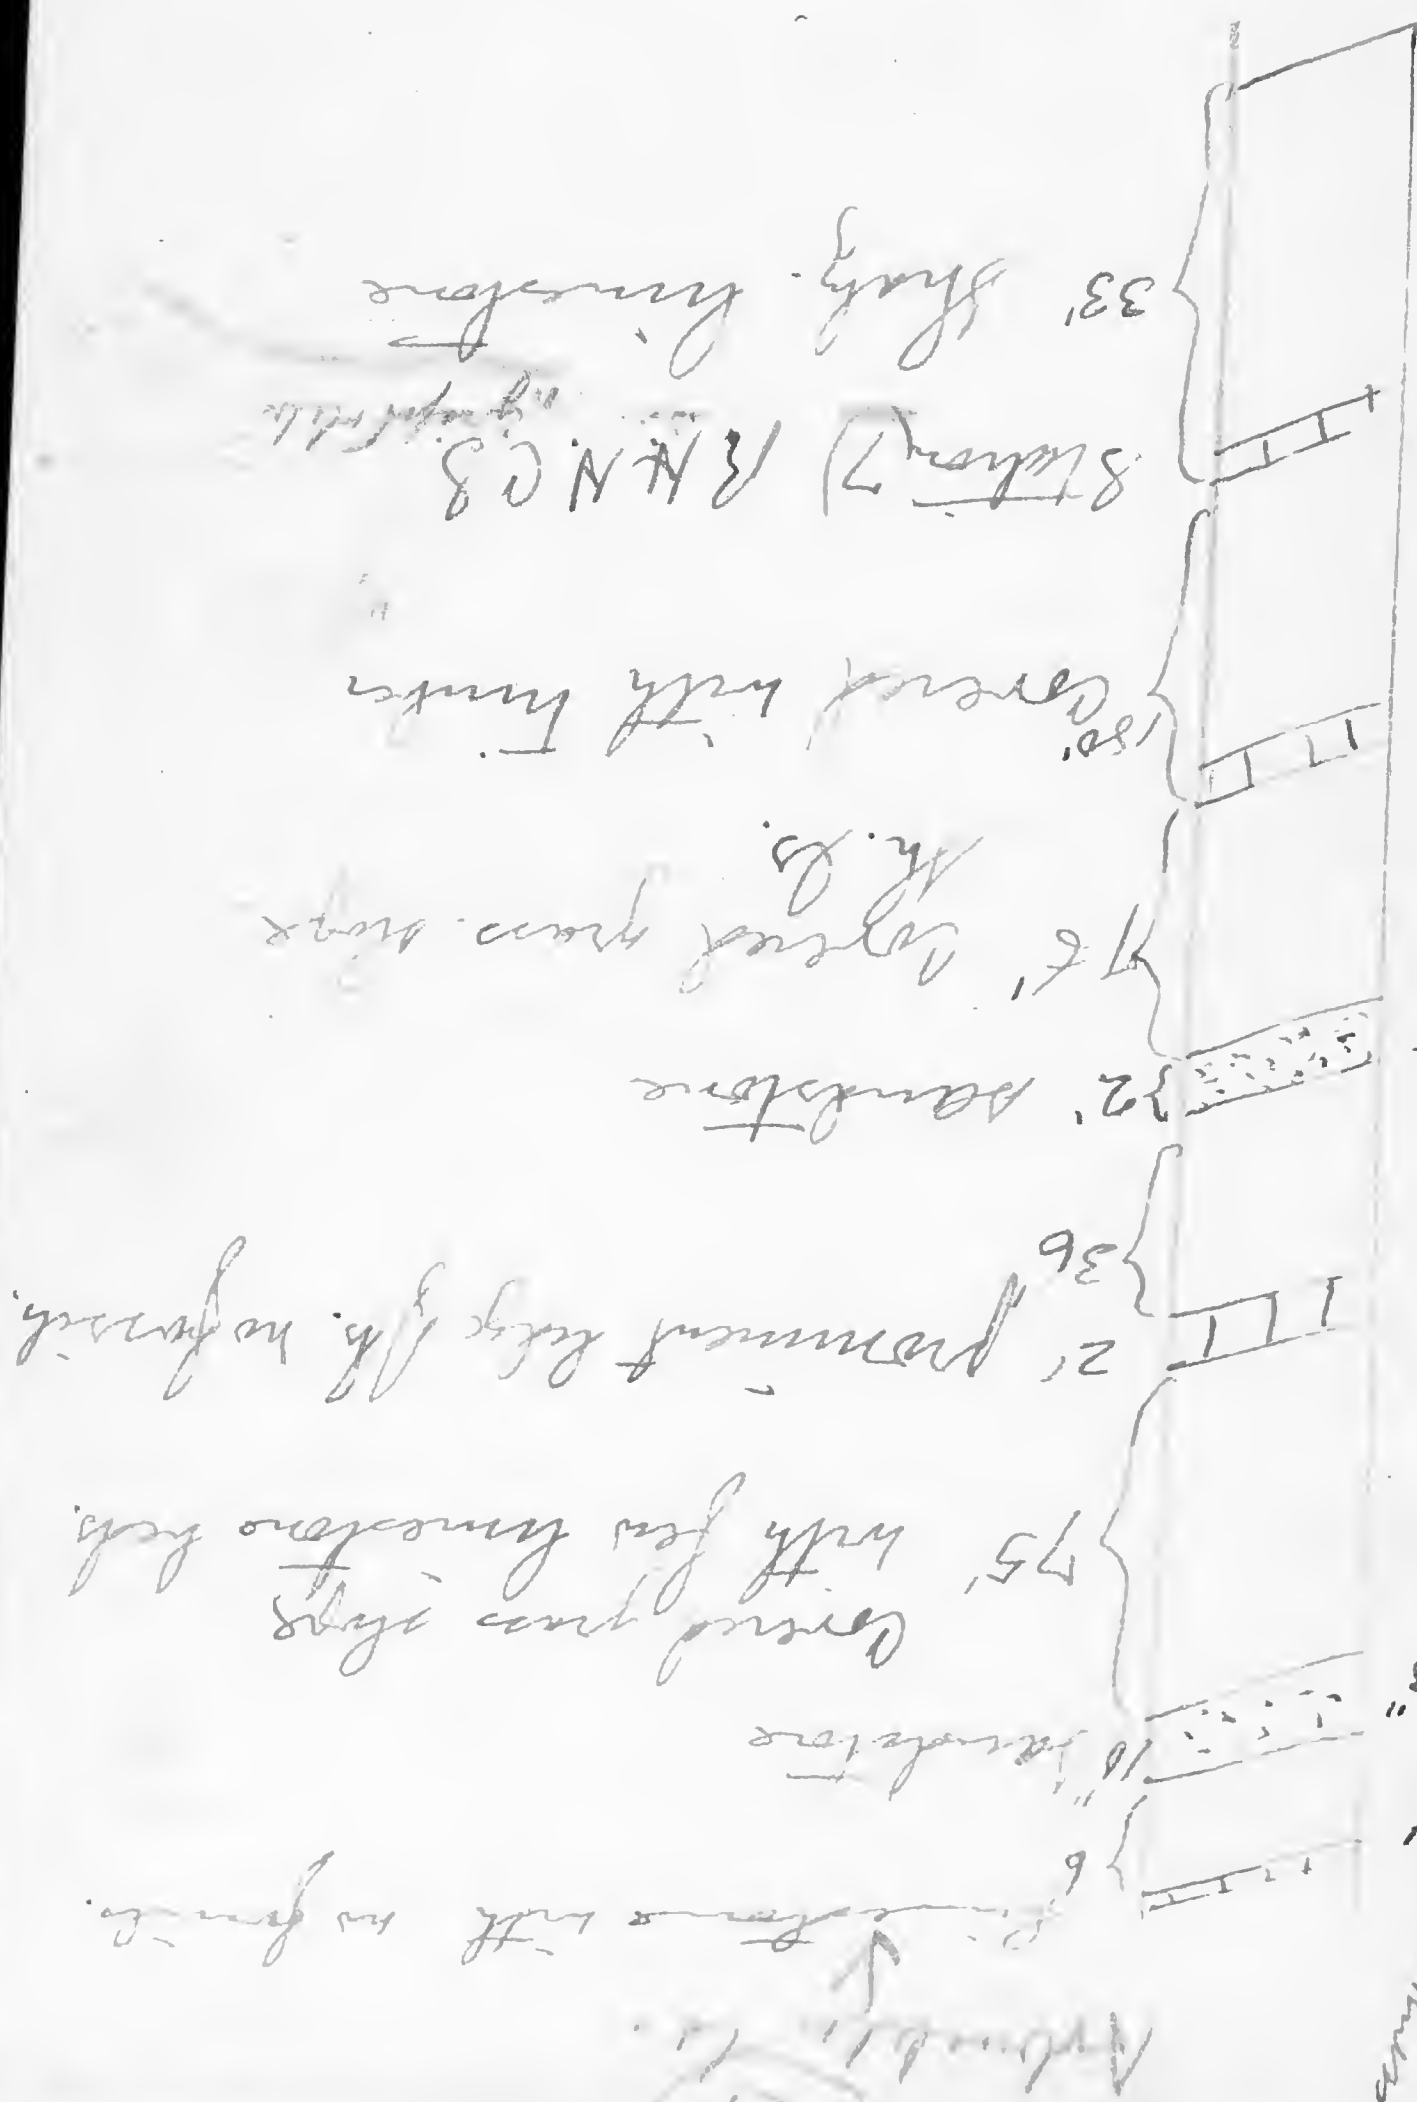 Limestone with no fossils.
6
10" Sandstone
Covered grass slope
75' with few limestone beds.
2' prominent ledge ls. no fossils.
36
2' sandstone
Covered grass slope
th. ls.
180' Covered with timber
Station 7) R H N C 3
33' Shaly limestone